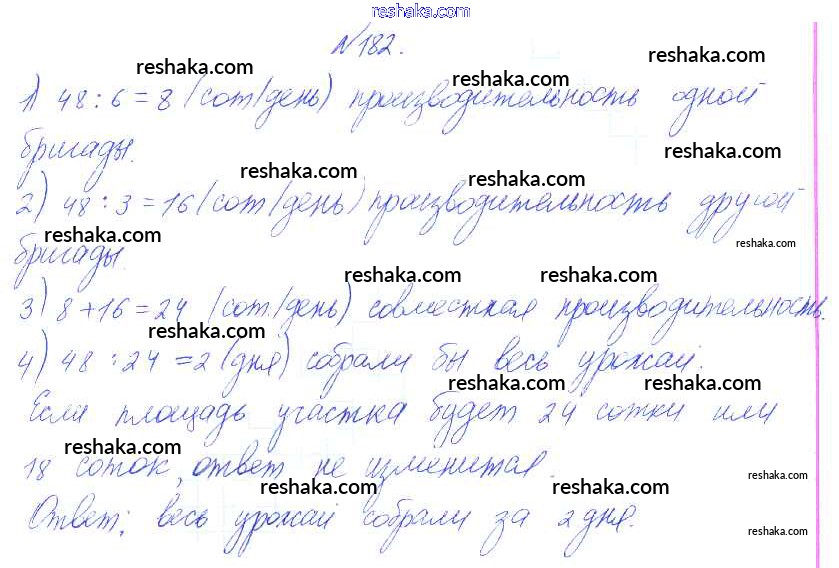 reshaka.com
№182.
reshaka.com reshaka.com reshaka.com
1) 48 : 6 = 8 (сот/день) производительность одной
бригады.
reshaka.com reshaka.com reshaka.com
2) 48 : 3 = 16 (сот/день) производительность другой
reshaka.com reshaka.com
бригады.
reshaka.com reshaka.com
3) 8 + 16 = 24 (сот./день) совместная производительность.
reshaka.com reshaka.com
4) 48 : 24 = 2 (дня) собрали бы весь урожай.
reshaka.com reshaka.com
Если площадь участка будет 24 сотки или
reshaka.com
18 соток, ответ не изменится.
reshaka.com
reshaka.com reshaka.com
Ответ: весь урожай собрали за 2 дня.
reshaka.com